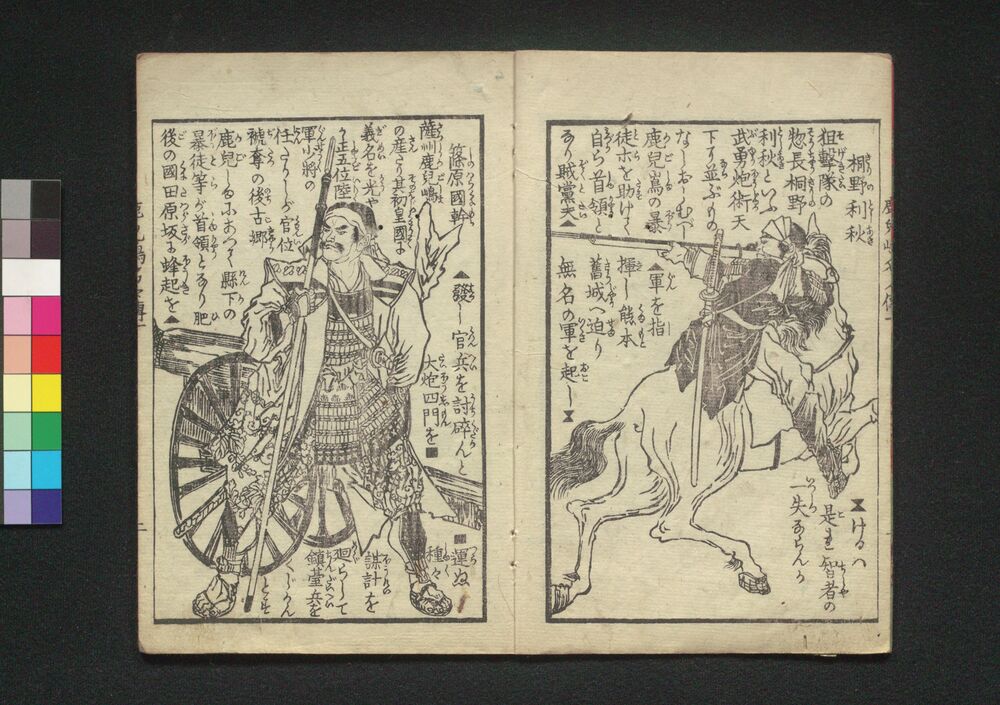 桐野利秋
狙撃隊の
惣長桐野
利秋といふ
武勇炮術天
下に並ぶもの
なしおしむべし
鹿兒嶌の暴
徒ホを助けて
自ら首領と
あり賊黨夫▲
▲軍を指
揮し熊本
舊城へ迫り
無名の軍を起し⧗
⧗けるハ
是ぞ智者の
一失ならんか
篠原國幹
薩州鹿兒嶋
の産にて其初皇國に
義名を光や
正五位陸
軍少将の
任たりしが官位
褫奪の後古郷
鹿兒しまにおゐて縣下の
暴徒等が首領となり肥
後の國田原坂に蜂起を▲
▲發し官兵を討碎んと
大炮四門を■
■運ぬ
種々
謀計を
廻らして
鎮䑓兵を
とす